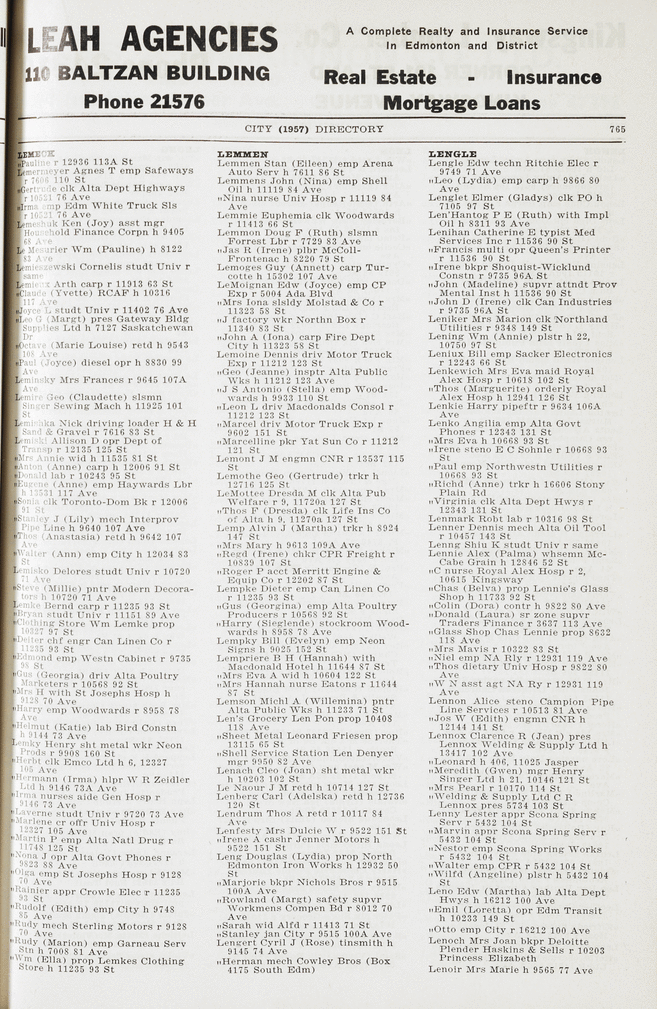 LEAH AGENCIES
110 BALTZAN BUILDING
Phone 21576
A Complete Realty and Insurance Service
In Edmonton and District
Real Estate - Insurance
Mortgage Loans
CITY (1957) DIRECTORY 765
LEMECK
"Pauline r 12936 113A St
Lemermeyer Agnes T emp Safeways
r 7608 110 St
"Gertrude clk Alta Dept Highways
r 10531 76 Ave
"Irma emp Edm White Truck Sls
r 10531 76 Ave
Lemeshak Ken (Joy) asst mgr
Household Finance Corpn h 9405
68 Ave
Le Mesurier Wm (Pauline) h 8122
83 Ave
Lemieszewski Cornelis studt Univ r
same
Lemieux Arth carp r 11913 63 St
"Claude (Yvette) RCAF h 10316
117 Ave
"Joyce L studt Univ r 11402 76 Ave
"Leo G (Margt) pres Gateway Bldg
Supplies Ltd h 7127 Saskatchewan
Dr
"Octave (Marie Louise) retd h 9543
108 Ave
"Paul (Joyce) diesel opr h 8830 99
Ave
Leminsky Mrs Frances r 9645 107A
Ave
Lemire Geo (Claudette) slsmn
Singer Sewing Mach h 11925 101
St
Lemishka Nick driving loader H & H
Sand & Gravel r 7616 83 St
Lemiski Allison D opr Dept of
Transp r 12135 125 St
"Mrs Annie wid h 11535 81 St
"Anton (Anne) carp h 12006 91 St
"Donald lab r 10243 95 St
"Eugene (Anne) emp Haywards Lbr
h 13531 117 Ave
"Sonia clk Toronto-Dom Bk r 12006
91 St
"Stanley J (Lily) mech Interprov
Pipe Line h 9640 107 Ave
"Thos (Anastasia) retd h 9642 107
Ave
"Walter (Ann) emp City h 12034 83
St
Lemisko Delores studt Univ r 10720
71 Ave
"Steve (Millie) pntr Modern Decora-
tors h 10720 71 Ave
Lemke Bernd carp r 11235 93 St
"Bryan studt Univ r 11151 89 Ave
"Clothing Store Wm Lemke prop
10327 97 St
"Deiter chf engr Can Linen Co r
11235 93 St
"Edmond emp Westn Cabinet r 9735
98 St
"Gus (Georgia) driv Alta Poultry
Marketers r 10568 92 St
"Mrs H with St Josephs Hosp h
9128 70 Ave
"Harry emp Woodwards r 8958 78
Ave
"Helmut (Katie) lab Bird Constn
h 9144 73 Ave
Lemky Henry sht metal wkr Neon
Prods r 9908 160 St
"Herbt clk Emco Ltd h 6, 12327
105 Ave
"Hermann (Irma) hlpr W R Zeidler
Ltd h 9146 73A Ave
"Irma nurses aide Gen Hosp r
9146 73 Ave
"Laverne studt Univ r 9720 73 Ave
"Marlene cr offr Univ Hosp r
12327 105 Ave
"Martin P emp Alta Natl Drug r
11748 125 St
"Nona J opr Alta Govt Phones r
9823 88 Ave
"Olga emp St Josephs Hosp r 9128
70 Ave
"Rainier appr Crowle Elec r 11235
93 St
"Rudolf (Edith) emp City h 9748
85 Ave
"Rudy mech Sterling Motors r 9128
70 Ave
"Rudy (Marion) emp Garneau Serv
Stn h 7008 81 Ave
"Wm (Ella) prop Lemkes Clothing
Store h 11235 93 St
LEMMEN
Lemmen Stan (Eileen) emp Arena
Auto Serv h 7611 86 St
Lemmens John (Nina) emp Shell
Oil h 11119 84 Ave
"Nina nurse Univ Hosp r 11119 84
Ave
Lemmie Euphemia clk Woodwards
r 11413 66 St
Lemmon Doug F (Ruth) slsmn
Forrest Lbr r 7729 83 Ave
"Jas R (Irene) plbr McColl-
Frontenac h 8220 79 St
Lemoges Guy (Annett) carp Tur-
cotte h 15302 107 Ave
LeMoignan Edw (Joyce) emp CP
Exp r 5004 Ada Blvd
"Mrs Iona slsldy Molstad & Co r
11323 58 St
"J factory wkr Northn Box r
11340 83 St
"John A (Iona) carp Fire Dept
City h 11323 58 St
Lemoine Dennis driv Motor Truck
Exp r 11212 123 St
"Geo (Jeanne) insptr Alta Public
Wks h 11212 123 Ave
"J S Antonio (Stella) emp Wood-
wards h 9933 110 St
"Leon L driv Macdonalds Consol r
11212 123 St
"Marcel driv Motor Truck Exp r
9602 151 St
"Marcelline pkr Yat Sun Co r 11212
121 St
Lemont J M engmn CNR h 13537 115
St
Lemothe Geo (Gertrude) trkr h
12716 125 St
LeMottee Dresda M clk Alta Pub
Welfare r 9, 11720a 127 St
"Thos F (Dresda) clk Life Ins Co
of Alta h 9, 11270a 127 St
Lemp Alvin J (Martha) trkr h 8924
147 St
"Mrs Mary h 9613 109A Ave
"Regd (Irene) chkr CPR Freight r
10839 107 St
"Roger P acct Merritt Engine &
Equip Co r 12202 87 St
Lempke Dieter emp Can Linen Co
r 11235 93 St
"Gus (Georgina) emp Alta Poultry
Producers r 10568 92 St
"Harry (Sieglende) stockroom Wood-
wards h 8958 78 Ave
Lempky Bill (Evelyn) emp Neon
Signs h 9025 152 St
Lempriere B H (Hannah) with
Macdonald Hotel h 11644 87 St
"Mrs Eva A wid h 10604 122 St
"Mrs Hannah nurse Eatons r 11644
87 St
Lemson Michl A (Willemina) pntr
Alta Public Wks h 11233 71 St
Len's Grocery Len Pon prop 10408
118 Ave
"Sheet Metal Leonard Friesen prop
13115 65 St
"Shell Service Station Len Denyer
mgr 9950 82 Ave
Lenach Cleo (Joan) sht metal wkr
h 10203 102 St
Le Naour J M retd h 10714 127 St
Lenberg Carl (Adelska) retd h 12736
120 St
Lendrum Thos A retd r 10117 84
Ave
Lenfesty Mrs Dulcie W r 9522 151 St
"Irene A cashr Jenner Motors h
9522 151 St
Leng Douglas (Lydia) prop North
Edmonton Iron Works h 12932 50
St
"Marjorie bkpr Nichols Bros r 9515
100A Ave
"Rowland (Margt) safety supvr
Workmens Compen Bd r 8012 70
Ave
"Sarah wid Alfd r 11413 71 St
"Stanley jan City r 9515 100A Ave
Lengert Cyril J (Rose) tinsmith h
9145 74 Ave
"Herman mech Cowley Bros (Box
4175 South Edm)
LENGLE
Lengle Edw techn Ritchie Elec r
9749 71 Ave
"Leo (Lydia) emp carp h 9866 80
Ave
Lenglet Elmer (Gladys) clk PO h
7105 97 St
Len'Hantog P E (Ruth) with Impl
Oil h 8311 93 Ave
Lenihan Catherine E typist Med
Services Inc r 11536 90 St
"Francis multi opr Queen's Printer
r 11536 90 St
"Irene bkpr Shoquist-Wicklund
Constn r 9735 96A St
"John (Madeline) supvr attndt Prov
Mental Inst h 11536 90 St
"John D (Irene) clk Can Industries
r 9735 96A St
Leniker Mrs Marion clk Northland
Utilities r 9348 149 St
Lening Wm (Annie) plstr h 22,
10750 97 St
Leniux Bill emp Sacker Electronics
r 12243 66 St
Lenkewich Mrs Eva maid Royal
Alex Hosp r 10618 102 St
"Thos (Marguerite) orderly Royal
Alex Hosp h 12941 126 St
Lenkie Harry pipeftr r 9634 106A
Ave
Lenko Angilia emp Alta Govt
Phones r 12343 131 St
"Mrs Eva h 10668 93 St
"Irene steno E C Sohnle r 10668 93
St
"Paul emp Northwestn Utilities r
10668 93 St
"Richd (Anne) trkr h 16606 Stony
Plain Rd
"Virginia clk Alta Dept Hwys r
12343 131 St
Lenmark Robt lab r 10316 98 St
Lenner Dennis mech Alta Oil Tool
r 10457 143 St
Lenng Shiu K studt Univ r same
Lennie Alex (Palma) whsemn Mc-
Cabe Grain h 12846 52 St
"C nurse Royal Alex Hosp r 2,
10615 Kingsway
"Chas (Belva) prop Lennie's Glass
Shop h 11733 92 St
"Colin (Dora) contr h 9822 80 Ave
"Donald (Laura) sr zone supvr
Traders Finance r 3637 113 Ave
"Glass Shop Chas Lennie prop 8632
118 Ave
"Mrs Mavis r 10322 83 St
"Niel emp NA Rly r 12931 119 Ave
"Thos dietary Univ Hosp r 9822 80
Ave
"W N asst agt NA Ry r 12931 119
Ave
Lennon Alice steno Campion Pipe
Line Services r 10513 81 Ave
"Jos W (Edith) engmn CNR h
12144 141 St
Lennox Clarence R (Jean) pres
Lennox Welding & Supply Ltd h
13417 102 Ave
"Leonard h 406, 11025 Jasper
"Meredith (Gwen) mgr Henry
Singer Ltd h 21, 10146 121 St
"Mrs Pearl r 10170 114 St
"Welding & Supply Ltd C R
Lennox pres 5734 103 St
Lenny Lester appr Scona Spring
Serv r 5432 104 St
"Marvin apnr Scona Spring Serv r
5432 104 St
"Nestor emp Scona Spring Works
r 5432 104 St
"Walter emp CPR r 5432 104 St
"Wilfd (Angeline) plstr h 5432 104
St
Leno Edw (Martha) lab Alta Dept
Hwys h 16212 100 Ave
"Emil (Loretta) opr Edm Transit
h 10233 149 St
"Otto emp City r 16212 100 Ave
Lenoch Mrs Joan bkpr Deloitte
Plender Haskins & Sells r 10203
Princess Elizabeth
Lenoir Mrs Marie h 9565 77 Ave